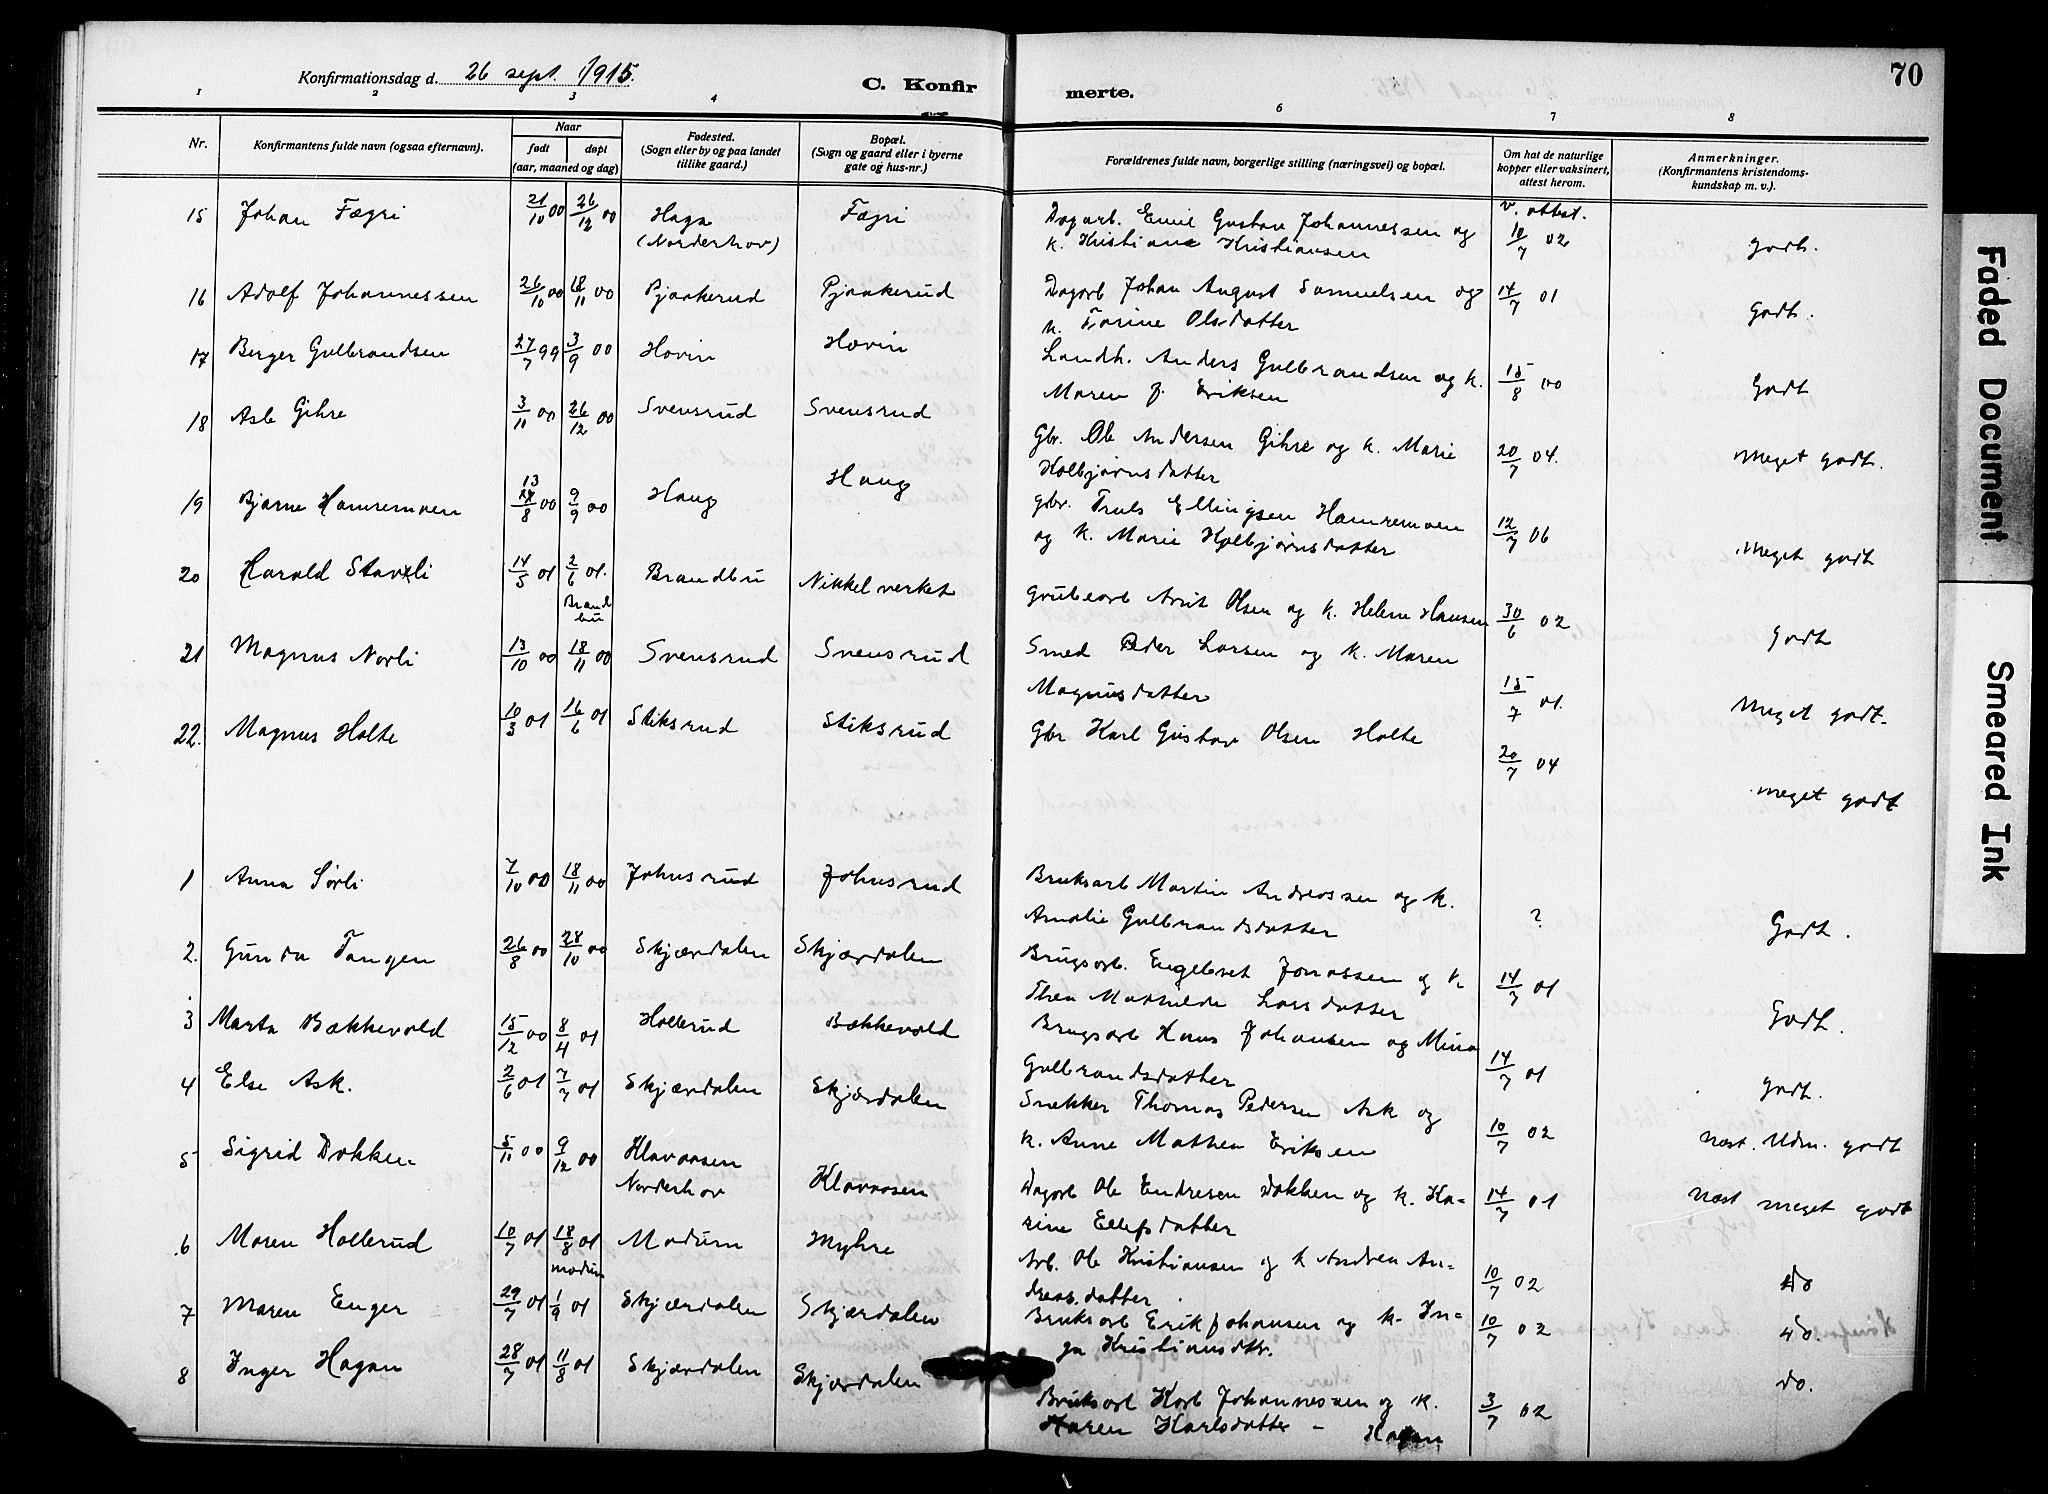 Konfirmationsdag d. 26 sept. 1915.
C. Konfirmerte.
70
1 2 3 4 5 6 7 8
Nr.
Konfirmantens fulde navn (ogsaa efternavn).
Naar
født
døpt
(aar, maaned og dag)
Fødested.
(Sogn eller by og paa landet
tillike gaard.)
Bopæl.
(Sogn og gaard eller i byerne
gate og hus-nr.)
Forældrenes fulde navn, borgerlige stilling (næringsvei) og bopæl.
Om hat de naturlige
kopper eller vaksinert,
attest herom.
Anmerkninger.
(Konfirmantens kristendoms-
kundskap m. v.).
15 Johan Fægri 21/10 00 26/12 00 Haga Fægri Dagarb. Emil Gustav Johannessen og v. attest.
(Norderhov) k. Kristiane Kristiansen 10/7 02 godt.
16 Adolf Johannessen 26/10 00 18/11 00 Pjaakerud Pjaakerud Dagarb Johan August Samuelsen og 14/7 01 Godt.
k. Torine Olsdatter
17 Berger Gulbrandsen 27/7 99 3/9 00 Hovin Hovin Landh. Anders Gulbrandsen og k. 15/8 00 Godt
Maren f. Eriksen
18 Asle Gihre 3/11 00 26/12 00 Svensrud Svensrud Gbr. Ole Andersen Gihre og k. Marie 20/7 04. Meget godt.
Kolbjørnsdatter
19 Bjarne Hamremoen 13/8 00 9/9 00 Haug Haug gbr. Truls Ellingsen Hamremoen 12/7 06 Meget godt
og k. Marie Kolbjørnsdatter
20 Harald Stavli 14/5 01 2/6 01. Brandbu Nikkelverket Grubearb Olsen og k. Helene Hansen 30/6 02 Godt
Brand
bu
21 Magnus Norli 13/10 00 18/11 00 Svensrud Svensrud Smed Peder Larsen og k. Maren
Magnusdatter 15/7 01. Meget godt.
22. Magnus Holte 10/3 01 16/6 01 Stiksrud Stiksrud Gbr Karl Gustav Olsen Holte
20/7 04 meget godt
1 Anna Sørli 7/10 00 18/11 00 Johnsrud Johnsrud Bruksarb Martin Andreassen og k.
Amalie Gulbrandsdatter ? Godt.
2. Gunda Tangen 26/8 00 28/10 00 Skjærdalen Skjærdalen Brugsarb. Engebret Jonassen og k
Thea Mathilde Larsdatter 14/7 01 Godt.
3 Marta Bækkevold 15/12 00 8/4 01 Hollerud Bækkevold Brugsarb Hans Johansen og Mina
Gulbrandsdatter 14/7 01 godt.
4 Else Ask. 2/6 01 7/7 01 Skjærdalen Skjærdalen Snekker Thomas Pedersen Ask og
k. Anne Mathea Eriksen 10/7 02 næst. Udm. godt
5 Sigrid Dokken 5/11 00 9/12 00 Klavaasen Klavaasen Dagarb Ole Endresen Dokken og k. Ka-
Norderhov rine Ellefsdatter 14/7 01 Næst meget godt
6 Maren Hollerud 10/7 01 18/8 01 Modum Myhre Arb. Ole Kristiansen og k Andrea An-
modum dreasdatter 10/7 02 do
7 Maren Enger 29/7 01 1/9 01 Skjærdalen Skjærdalen Bruksarb Erik Johansen og k. In-
ga Kristiansdtr. 10/7 02 do.
8 Inger Hagan 28/7 01 11/8 01 Skjærdalen Skjærdalen do.
Bruksarb Karl Johannessen og k.
Karen Karlsdatter - Hagan 3/7 02
Faded Document
Smeared Ink